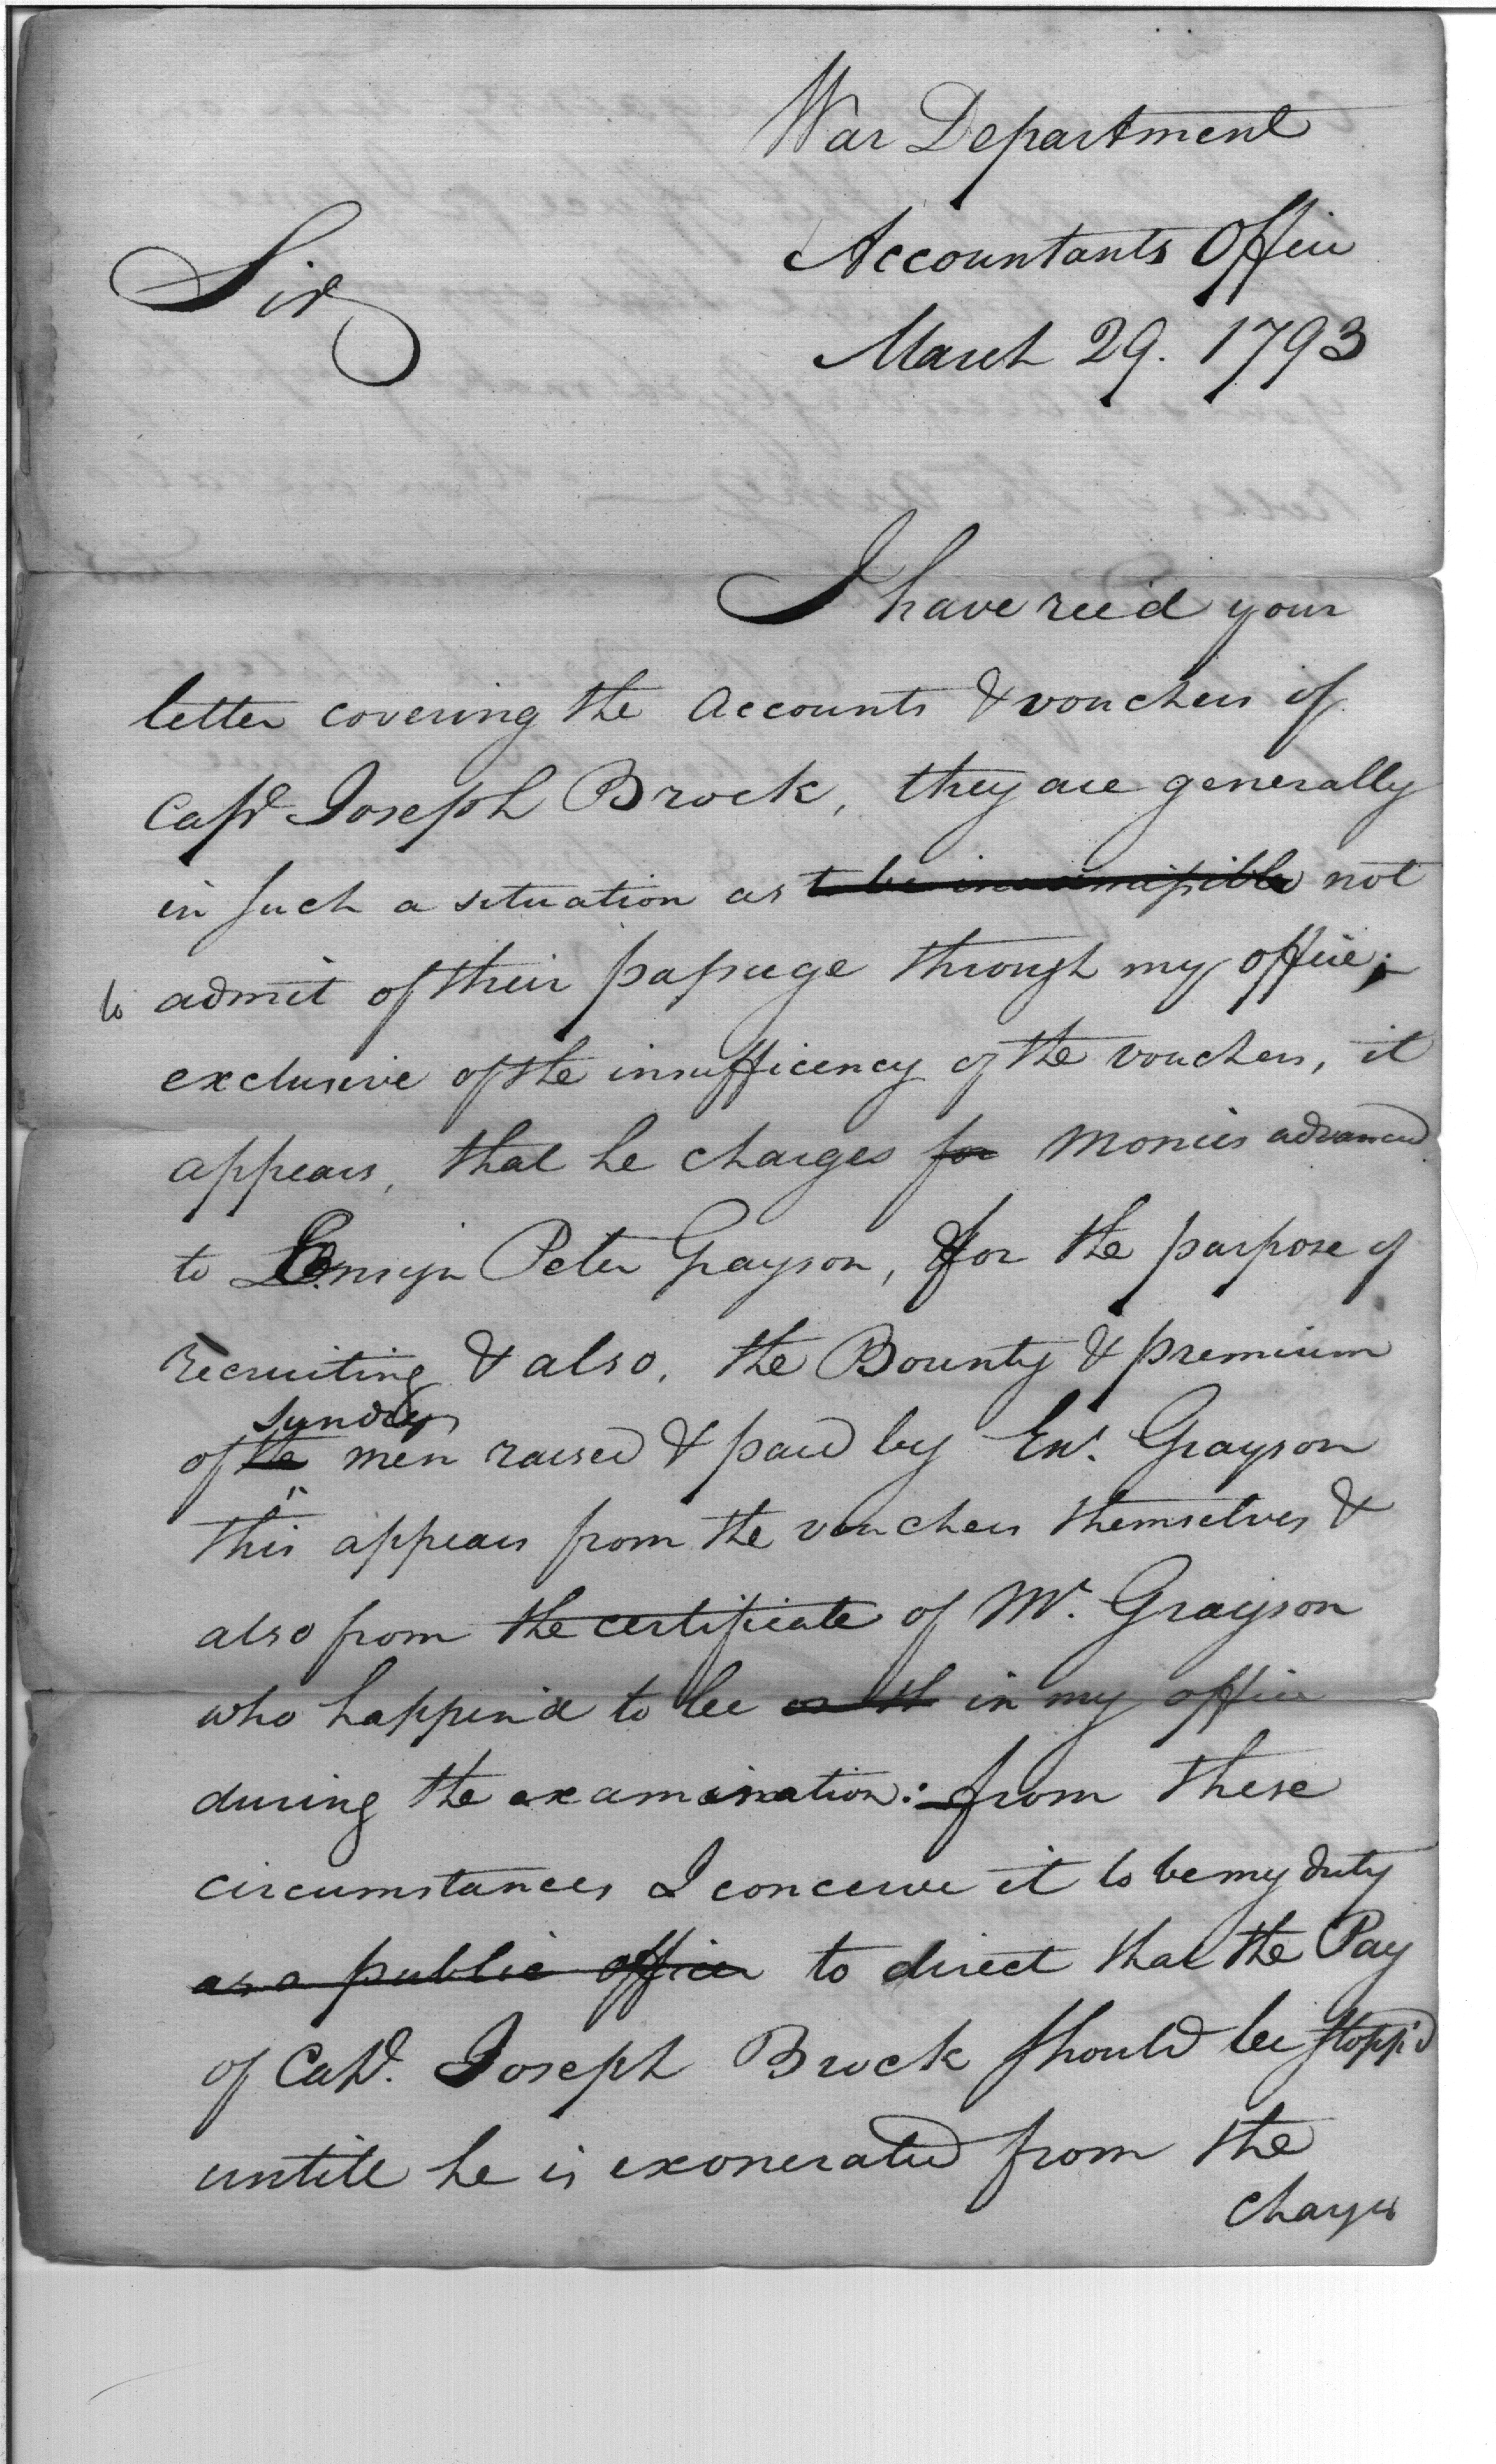 War Department
Accountants Office
Sir
March 29. 1793
I have rec'd your
letter covering the Accounts & vouchers of
Capt Joseph Brock, they are generally
in such a situation as to be inadmissible not
to admit of their passage through my office;
exclusive of the insufficency of the vouchers, it
appears, that he charges for monies advanced
to Ensign Peter Grayson, for the purpose of
recruiting & also, the Bounty & premium
sundry
of the men raised & paid by Ens. Grayson
this appears from the vouchers themselves &
also from the certificate of Mr. Grayson
who happen'd to be in my office
during the examination: from these
circumstances I conceive it to be my duty
as a public officer to direct that the Pay
of Capt. Joseph Brock should be stopp'd
untill he is exonerated from the
charges